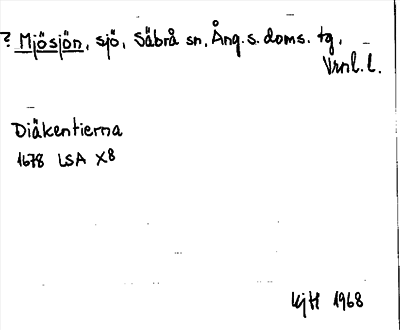 ? Mjösjön, sjö, Säbrå sn, Ång. s. doms. tg,
Vrml. l.
Diäkentierna
1678 LSA X8
KjH 1968